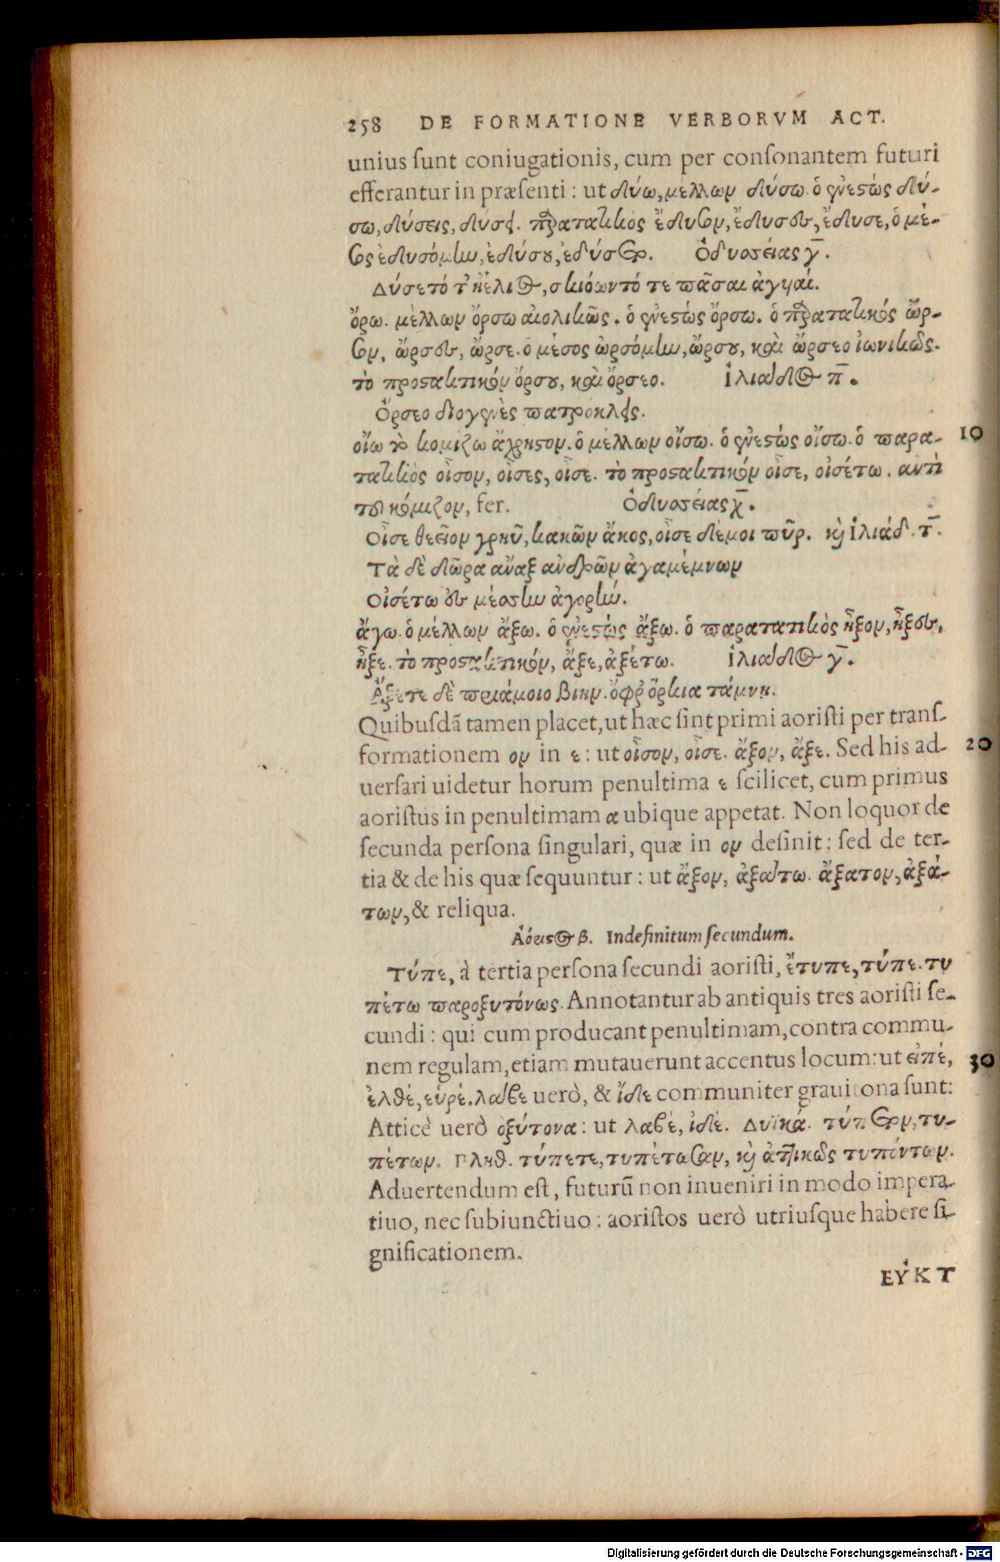 258 DE FORMATIONE VERBORVM ACT.
unius ſunt coniugationis, cum per conſonantem futuri
efferantur in præſenti: ut δύω, μέλλων δύσω. ὁ ἐνεστὼς δύ-
σω, δύσεις, δύσει. παρατατικὸς ἔδυσον, ἔδυσες, ἔδυσε, ὁ μέ-
σος ἐδυσόμην, ἐδύσου, ἐδύσετο. Ὀδυσσείας γ̄.
Δύσετό τ' ἠέλιος, σκιόωντό τε πᾶσαι ἀγυιαί.
ὄρω. μέλλων ὄρσω αἰολικῶς. ὁ ἐνεστὼς ὄρσω. ὁ παρατατικός ὦρ-
σον, ὦρσες, ὦρσε. ὁ μέσος ὠρσόμην, ὤρσου, καὶ ὤρσεο ἰωνικῶς.
τὸ προστακτικόν ὄρσου, καὶ ὄρσεο. Ἰλιάδος π̄.
Ὄρσεο διογενὲς πατρόκλεις.
οἴω τὸ κομίζω ἄχρηστον. ὁ μέλλων οἴσω. ὁ ἐνεστὼς οἴσω. ὁ παρα- 10
τατικὸς οἶσον, οἶσες, οἶσε. τὸ προστακτικόν οἶσε, οἰσέτω. αντὶ
τοῦ κόμιζον, fer. Ὀδυσσείας χ̄.
Οἶσε θέειον γρηῦ, κακῶν ἄκος, οἶσε δέ μοι πῦρ. καὶ Ἰλιάδ. τ̄.
Τὰ δὲ δῶρα ἄναξ ανδρῶν ἀγαμέμνων
Οἰσέτω ἐς μέσσην ἀγορήν.
ἄγω. ὁ μέλλων ἄξω. ὁ ἐνεστὼς ἄξω. ὁ παρατατικὸς ἦξον, ἦξες,
ἦξε. τὸ προστακτικόν, ἄξε, ἀξέτω. Ἰλιάδος γ̄.
Ἄξετε δὲ πριάμοιο βίην. ὄφρ' ὅρκια τάμνη.
Quibuſdã tamen placet, ut hæc ſint primi aoriſti per tranſ-
formationem ον in ε: ut οἶσον, οἶσε. ἄξον, ἄξε. Sed his ad- 20
uerſari uidetur horum penultima ε ſcilicet, cum primus
aoriſtus in penultimam α ubique appetat. Non loquor de
ſecunda perſona ſingulari, quæ in ον deſinit: ſed de ter-
tia & de his quæ ſequuntur: ut ἄξον, ἀξάτω. ἄξατον, ἀξά-
των, & reliqua.
Ἀόριστος β. Indefinitum ſecundum.
Τύπε, à tertia perſona ſecundi aoriſti, ἔτυπε, τύπε. τυ
πέτω παροξυτόνως. Annotantur ab antiquis tres aoriſti ſe-
cundi: qui cum producant penultimam, contra commu-
nem regulam, etiam mutauerunt accentus locum: ut εἰπέ, 30
ἐλθέ, εὑρέ. λάβε uerò, & ἴδε communiter grauitona ſunt:
Atticè uerò ὀξύτονα: ut λαβέ, ἰδέ. Δυϊκά. τύπετον, τυ-
πέτων. Πληθ. τύπετε, τυπέτωσαν, καὶ ἀττικῶς τυπόντων.
Aduertendum eſt, futurũ non inueniri in modo impera-
tiuo, nec ſubiunctiuo: aoriſtos uerò utriuſque habere ſi-
gnificationem.
ΕΥ̓ΚΤ
Digitalisierung gefördert durch die Deutsche Forschungsgemeinschaft - DFG